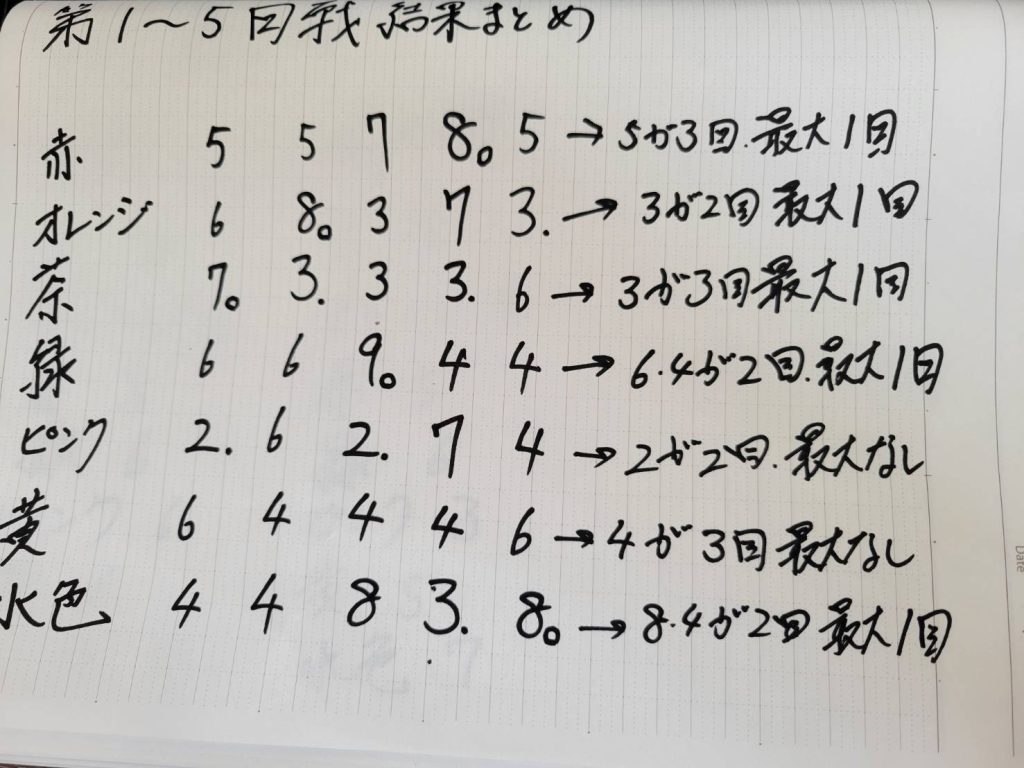 第1～5回戦 結果まとめ
赤 5 5 7 8。 5 → 5が3回.最大1回
オレンジ 6 8。 3 7 3. → 3が2回 最大1回
茶 7。 3. 3 3. 6 → 3が3回最大1回
緑 6 6 9。 4 4 → 6.4が2回.最大1回
ピンク 2. 6 2. 7 4 → 2が2回.最大なし
黄 6 4 4 4 6 → 4が3回最大なし
水色 4 4 8 3. 8。 → 8.4が2回 最大1回
Date